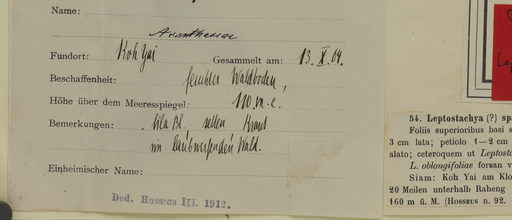 Name:
Acanthaceae
Fundort: Koh Yai Gesammelt am: 13. X. 04.
Beschaffenheit: feuchter Waldboden,
Höhe über dem Meeresspiegel: 110 m.
Bemerkungen: lila Bl, selten Kraut
im laubwerfenden Wald.
Einheimischer Name:
Ded. Hosseus III. 1912.
54. Leptostachya (?) sp
Foliis superioribus basi s
3 cm lata; petiolo 1—2 cm
alato; ceteroquem ut Leptosta
L. oblongifoliae forsan v
Siam: Koh Yai am Klo
20 Meilen unterhalb Raheng
160 m ü. M. (Hosseus n. 92.